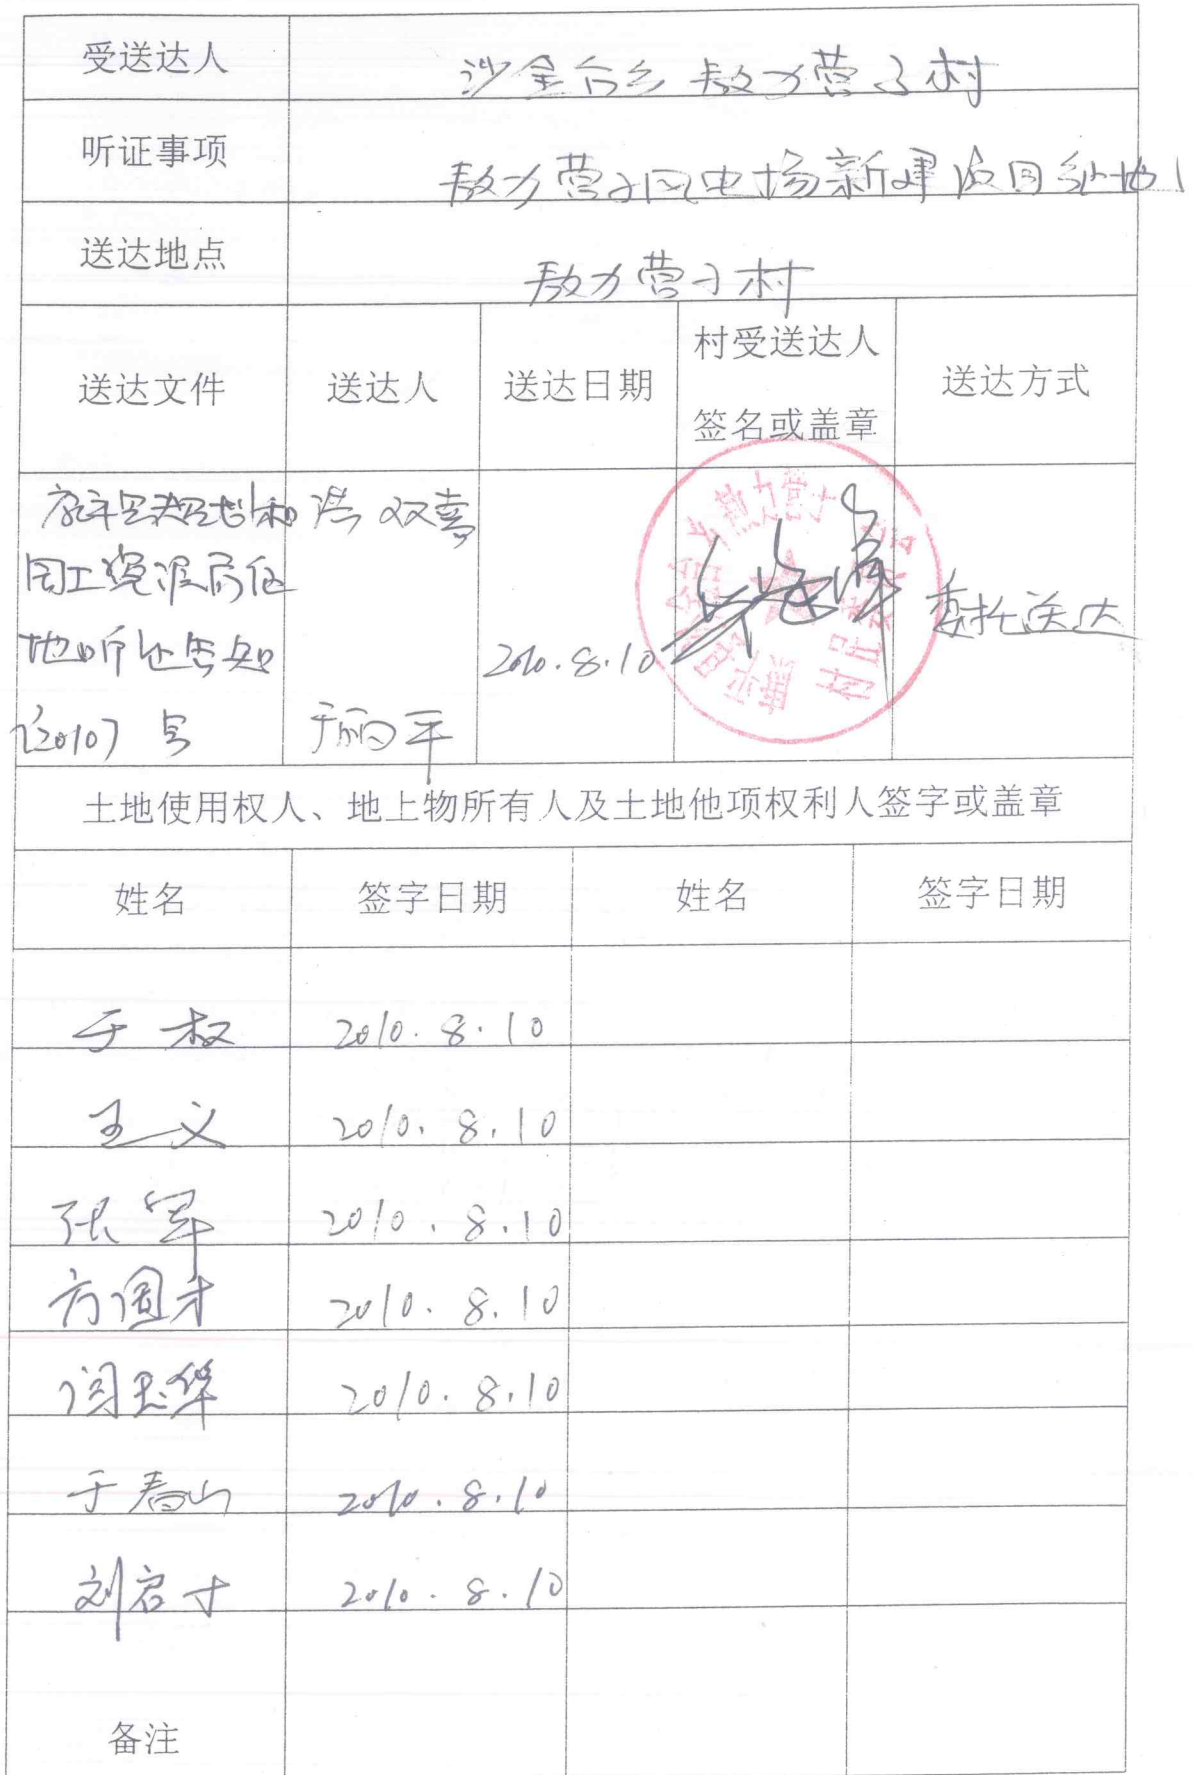 受送达人 沙金台乡敖力营子村
听证事项 敖力营子风电场新建项目征地
送达地点 敖力营子村
送达文件 送达人 送达日期 村受送达人 签名或盖章 送达方式
康平县规划和 洪双喜
国土资源局征
地听证告知 2010.8.10 委托送达
[2010] 号 于丽平
土地使用权人、地上物所有人及土地他项权利人签字或盖章
姓名 签字日期 姓名 签字日期
于权 2010.8.10
王义 2010.8.10
张军 2010.8.10
方国才 2010.8.10
闫玉华 2010.8.10
于春山 2010.8.10
刘启才 2010.8.10
备注